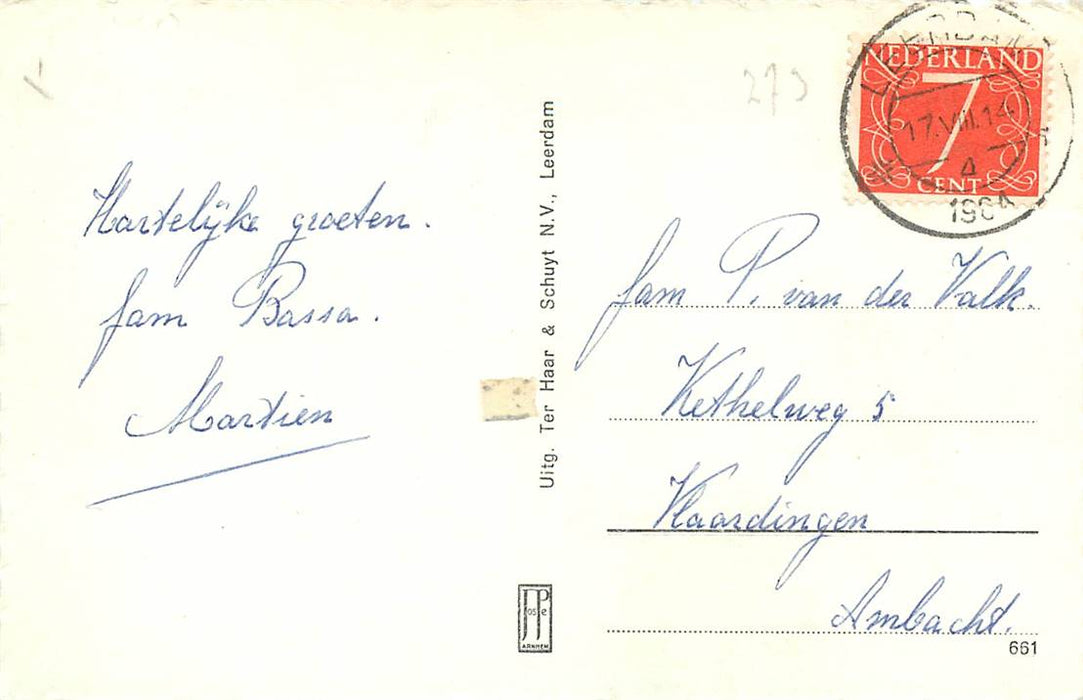 Hartelijke groeten.
fam Bassa.
Martien
Uitg. Ter Haar & Schuyt N.V., Leerdam
JosPé
ARNHEM
273
LEERDAM
17.VIII.14
A
1964
NEDERLAND
7
CENT
fam P. van der Valk.
Kethelweg 5
Vlaardingen
Ambacht.
661